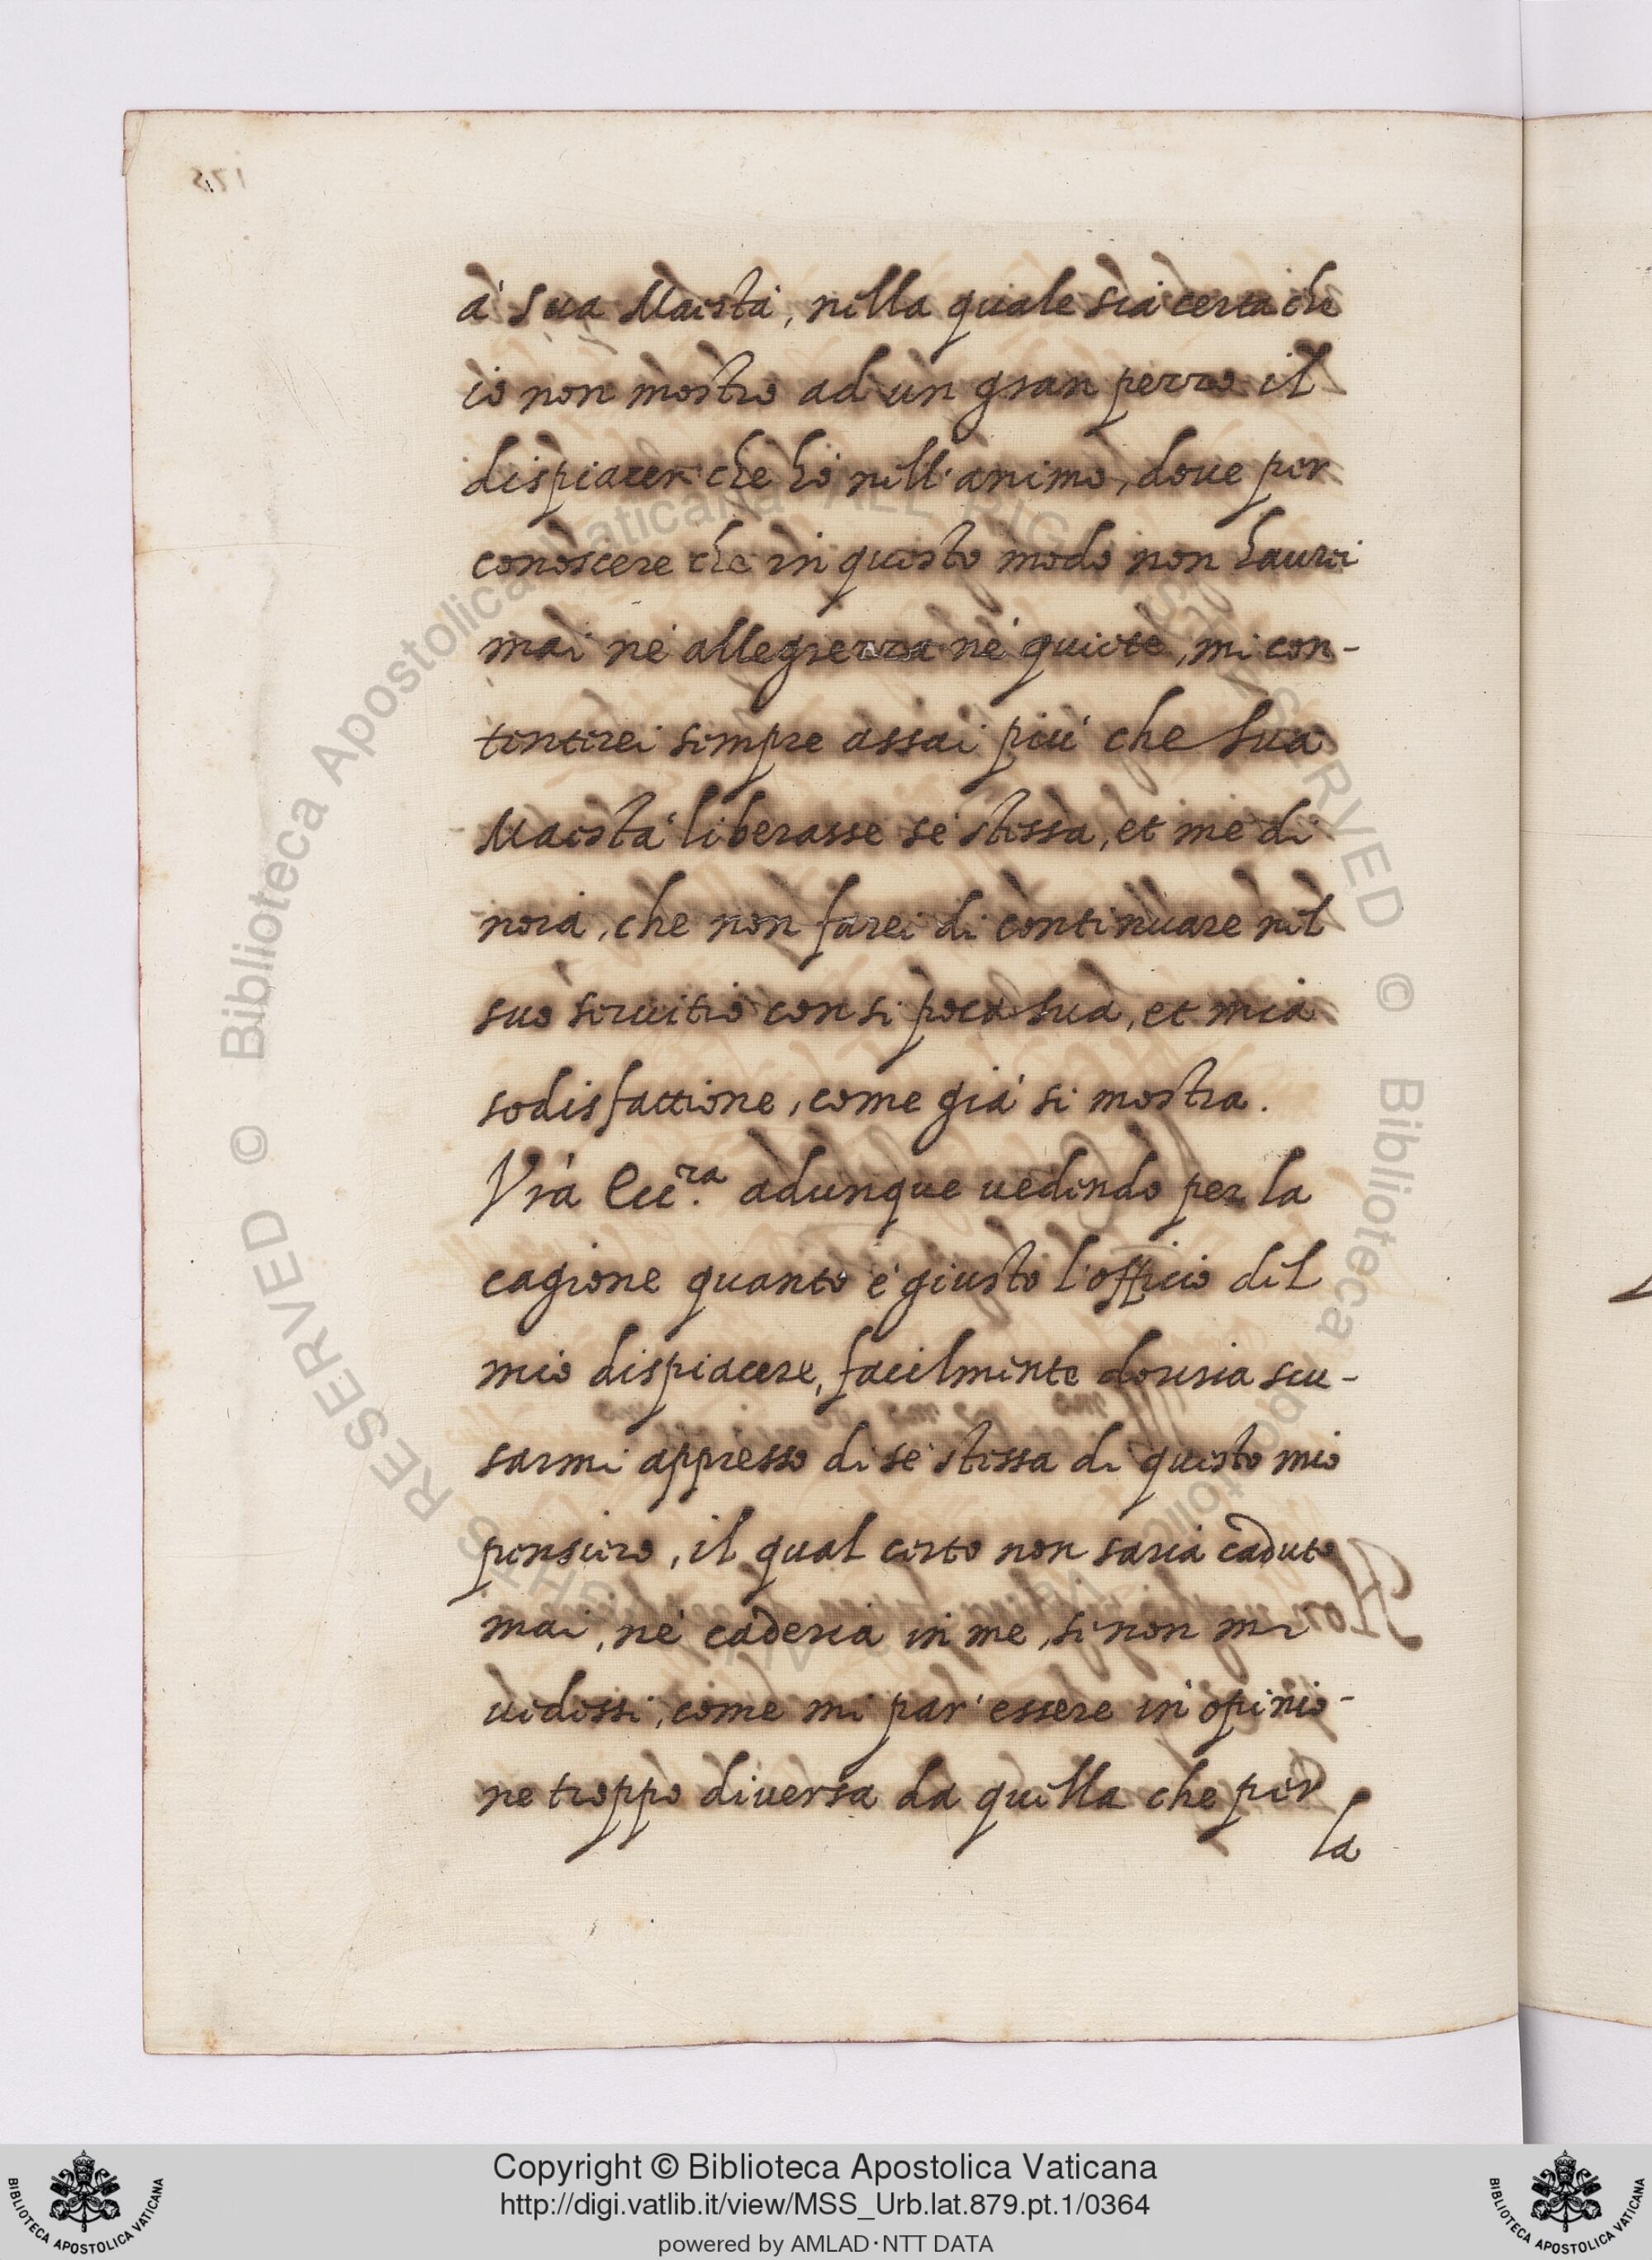 à sua Maestà, nella quale sia certa che
io non mostro ad un gran pezzo il
dispiacer che hò nell'animo, dove per
conoscere che in questo modo non haurei
mai nè allegrezza nè quiete, mi con-
tenterei sempre assai più che sua
Maestà liberasse sè stessa, et me di
noia, che non farei di continuare nel
suo servitio con si poca sua, et mia
sodisfattione, come già si mostra.
Vra Ecc.ra adunque vedendo per la
cagione quanto è giusto l'officio del
mio dispiacere, facilmente dovria scu-
sarmi appresso di sè stessa di questo mio
pensiero, il qual certo non saria caduto
mai, nè caderia in me, se non mi
vedessi, come mi par' essere in opinio-
ne troppo diversa da quella che per
la
© Biblioteca Apostolica Vaticana ALL RIGHTS RESERVED
Copyright © Biblioteca Apostolica Vaticana
http://digi.vatlib.it/view/MSS_Urb.lat.879.pt.1/0364
powered by AMLAD·NTT DATA
BIBLIOTECA APOSTOLICA VATICANA
BIBLIOTECA APOSTOLICA VATICANA